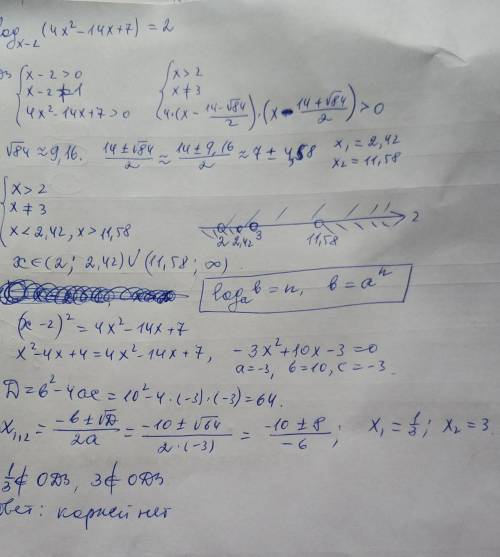 log_{x-2} (4x² - 14x + 7) = 2
{ x - 2 > 0   { x > 2
x - 2 ≠ 1   x ≠ 3
4x² - 14x + 7 > 0   4·(x - (14 - √84)/2)·(x - (14 + √84)/2) > 0
√84 ≈ 9,16. (14 ± √84)/2 ≈ (14 ± 9,16)/2 ≈ 7 ± 4,58   x₁ = 2,42
x₂ = 11,58
{ x > 2
x ≠ 3
x < 2,42, x > 11,58   2 2,42 3 11,58 2
x ∈ (2; 2,42) ∪ (11,58; ∞)
log_a b = n, b = aⁿ
(x - 2)² = 4x² - 14x + 7
x² - 4x + 4 = 4x² - 14x + 7, -3x² + 10x - 3 = 0
a = -3, b = 10, c = -3.
D = b² - 4ac = 10² - 4·(-3)·(-3) = 64.
x₁,₂ = (-b ± √D)/2a = (-10 ± √64)/(2·(-3)) = (-10 ± 8)/-6; x₁ = 1/3; x₂ = 3.
1/3 ∉ ОДЗ, 3 ∉ ОДЗ
вет: корней нет